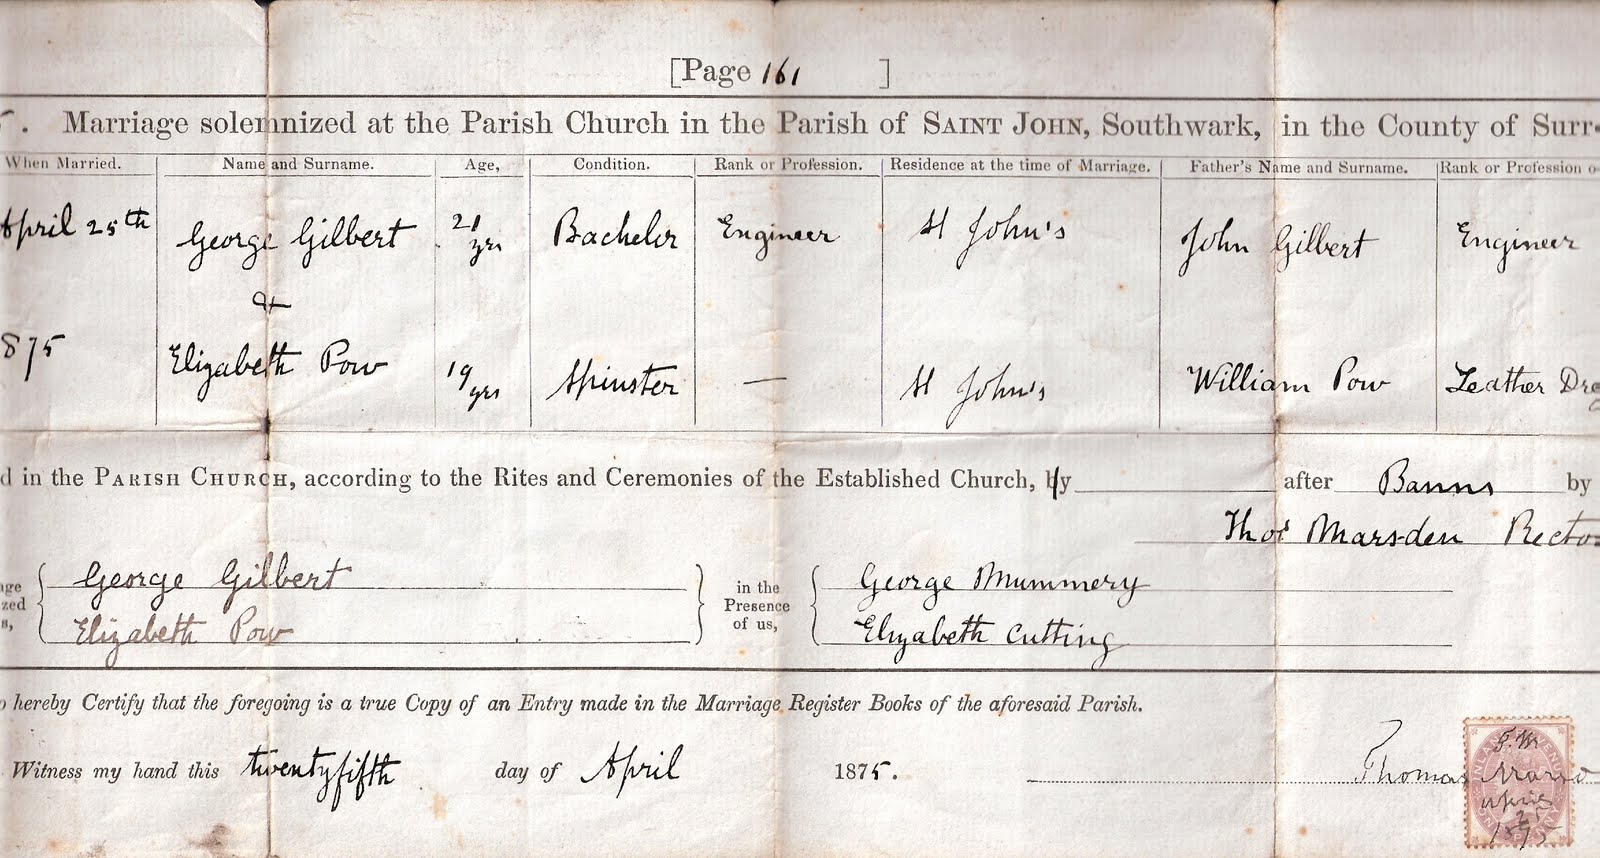 [Page 161 ]
5. Marriage solemnized at the Parish Church in the Parish of SAINT JOHN, Southwark, in the County of Surr
When Married. Name and Surname. Age, Condition. Rank or Profession. Residence at the time of Marriage. Father's Name and Surname. Rank or Profession o
April 25th George Gilbert 21 yrs Bachelor Engineer St John's John Gilbert Engineer
&
875 Elizabeth Pow 19 yrs Spinster — St John's William Pow Leather Dre
d in the PARISH CHURCH, according to the Rites and Ceremonies of the Established Church, by after Banns by
Thos Marsden Recto
age
zed
s,
George Gilbert
Elizabeth Pow
in the
Presence
of us,
George Mummery
Elizabeth Cutting
o hereby Certify that the foregoing is a true Copy of an Entry made in the Marriage Register Books of the aforesaid Parish.
Witness my hand this twentyfifth day of April 1875. Thomas
T.M
April
25
1875